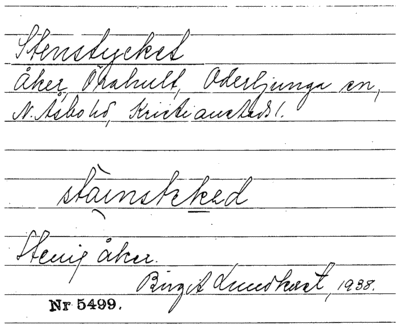 Stenstycket
Åker, Örahult, Oderljunga sn,
N. Åsbo hd, Kristianstads l.
stäinstekad
Stenig åker.
Birgit Lundkvist, 1938.
Nr 5499.